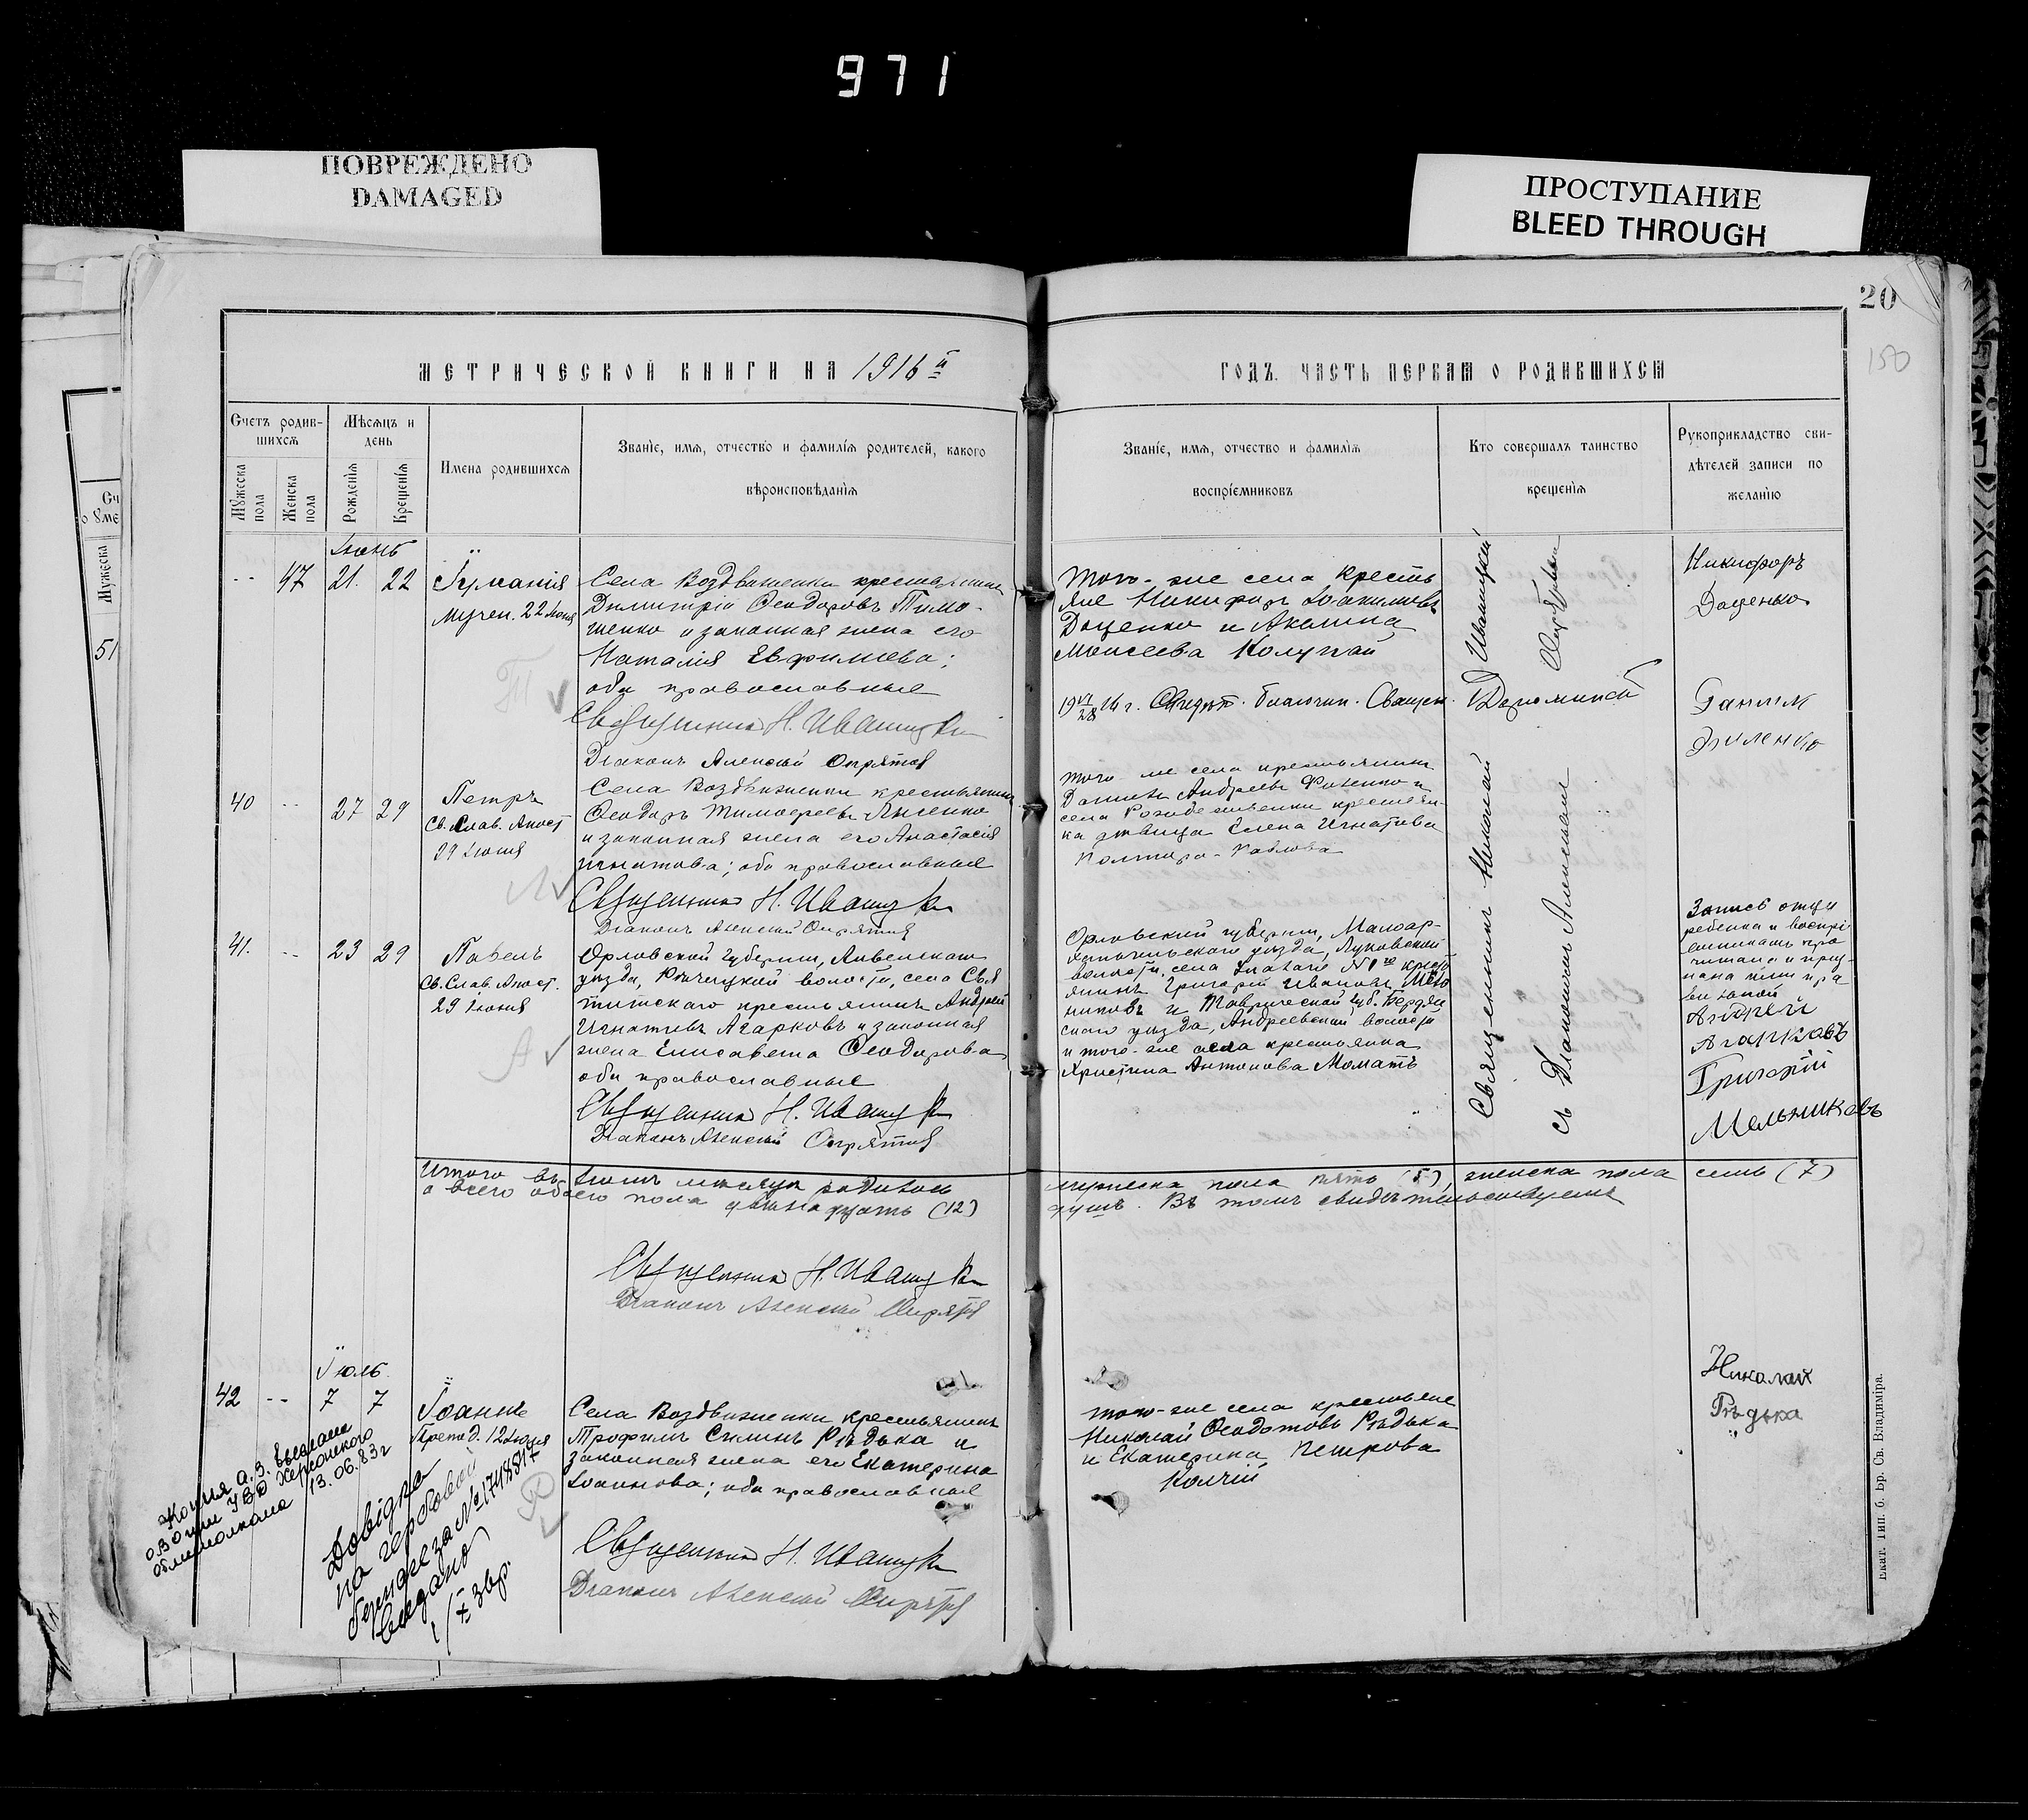 971
ПОВРЕЖДЕНО
DAMAGED
ПРОСТУПАНИЕ
BLEED THROUGH
20
150
МЕТРИЧЕСКОЙ КНИГИ НА 1916 й
ГОДЪ. ЧАСТЬ ПЕРВАЯ О РОДИВШИХСЯ
Счетъ родив-
шихся
Мужеска
пола
Женска
пола
Мѣсяцъ и
день
Рожденія
Крещенія
Имена родившихся
Званіе, имя, отчество и фамилія родителей, какого
вѣроисповѣданія
Званіе, имя, отчество и фамилія
воспріемниковъ
Кто совершалъ таинство
крещенія
Рукоприкладство сви-
дѣтелей записи по
желанію
Мужеска
51
Іюнь
-- 47 21. 22
Іуліанія
мучен. 22 Іюня
Села Воздвиженки крестьянинъ
Димитрій Ѳеодоровъ Тимо-
шенко и законная жена его
Наталія Евфиміева;
оба православные
Священникъ Н. Ивашуцкій
Діаконъ Алексій Опрятовъ
того-же села кресть
яне Никифоръ Іоакимовъ
Доценко и Акилина
Моисеева Колупай
Никифоръ
Доценко
40 -- 27 29
Петръ
Св. Слав. Апост
29 Іюня
Села Воздвиженки крестьянинъ
Ѳеодоръ Тимоѳеевъ Лысенко
и законная жена его Анастасія
Игнатова; оба православные
Священникъ Н. Ивашуцкій
Діаконъ Алексій Опрятовъ
того-же села крестьянинъ
Даніилъ Андреевъ
села Рождественки крестьян-
ка дѣвица Елена Игнатова
41. -- 23 29
Павелъ
Св. Слав. Апост.
29 Іюня
Орловской губерніи, Ливенскаго
уѣзда, волости, села Свя
титскаго крестьянинъ Андрей
Игнатьевъ Агарковъ и законная
жена Елисавета Ѳеодорова
оба православные
Священникъ Н. Ивашуцкій
Діаконъ Алексій Опрятовъ
Орловской губерніи, Малоар-
хангельскаго уѣзда, Луковской
волости, села кресть
янинъ Григорій Ивановъ Мель
никовъ и Таврической губ. Бердян
скаго уѣзда, Андреевской волости
и того-же села крестьянка
Христина Антонова
Священникъ Николай
съ Діакономъ Алексіемъ
Запись отцу
ребенка и воспрі
емникамъ про
читана и приз-
нана ими пра
вильной
Андрей
Агарковъ
Григорій
Мельниковъ
Итого въ Іюнѣ мѣсяцѣ родилось
а всего обоего пола двѣнадцать (12)
мужеска пола пять (5), женска пола семь (7)
душъ. Въ томъ свидѣтельствуемъ
Священникъ Н. Ивашуцкій
Діаконъ Алексій Опрятовъ
Іюль
42 -- 7 7
Іоаннъ
Препод. 12 Іюля
Села Воздвиженки крестьянинъ
Трофимъ Силинъ Рѣдька и
законная жена его Екатерина
Іоаннова; оба православные
Священникъ Н. Ивашуцкій
Діаконъ Алексій Опрятовъ
того-же села крестьяне
Николай Ѳеодотовъ Рѣдька
и Екатерина Петрова
Колчій
Николай
Рѣдька
Копия а.з. выслана
УВД Херсонского
облисполкома 13.06.83г
Довідка
на гербовой
бумаге за №
видано
Екат. Тип. б. Бр. Св. Владиміра.